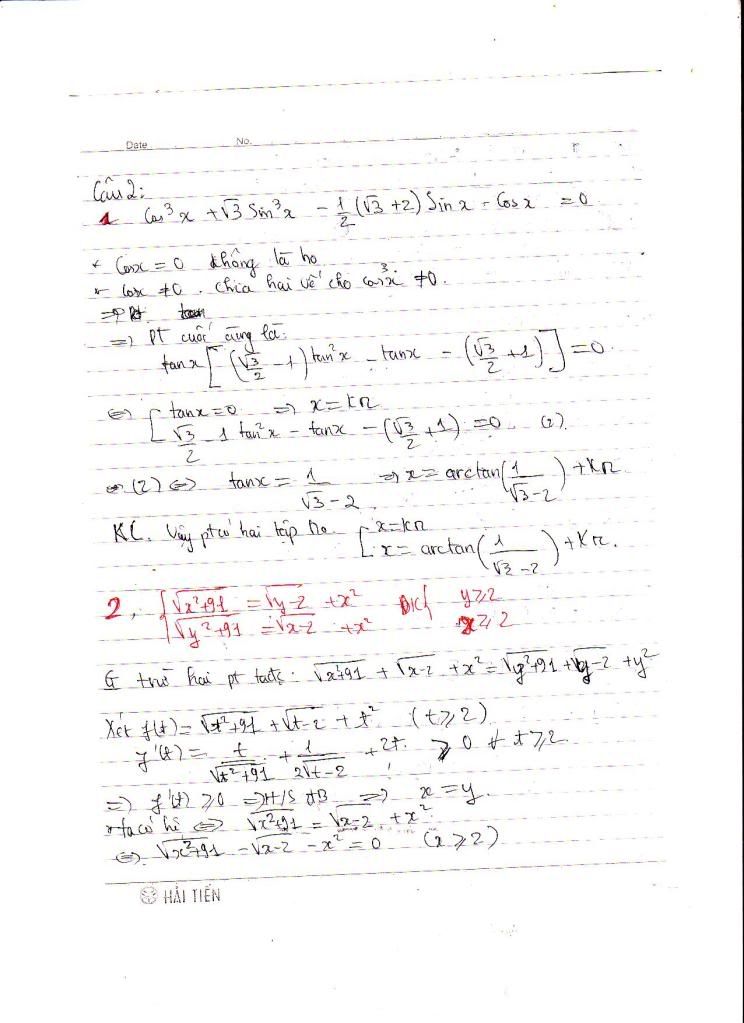 Date No.
Câu 2:
1 Cos³x + √3 Sin³x - 1/2 (√3 + 2) Sin x - Cos x = 0
+ Cosx = 0 không là no
+ Cosx ≠ 0. chia hai vế cho cos³x ≠ 0.
=> Pt
=> Pt cuối cùng là:
tanx [ (√3/2 - 1) tan²x - tanx - (√3/2 + 1) ] = 0
⇔ [ tanx = 0 => x = kπ
√3/2 - 1 tan²x - tanx - (√3/2 + 1) = 0 (2)
(2) ⇔ tanx = 1/(√3 - 2) => x = arctan(1/(√3 - 2)) + kπ
KL. Vậy pt có hai tập no [ x = kπ
x = arctan(1/(√3 - 2)) + kπ.
2, { √(x²+91) = √(y-2) + x² ĐK { y ≥ 2
√(y²+91) = √(x-2) + x² x ≥ 2
G trừ hai pt ta đc: √(x²+91) + √(x-2) + x² = √(y²+91) + √(y-2) + y²
Xét f(t) = √(t²+91) + √(t-2) + t² (t ≥ 2)
f'(t) = t/√(t²+91) + 1/(2√(t-2)) + 2t. ≥ 0 ∀ t ≥ 2
=> f'(t) ≥ 0 => H/S ĐB => x = y.
+ ta có hệ ⇔ √(x²+91) = √(x-2) + x²
⇔ √(x²+91) - √(x-2) - x² = 0 (x ≥ 2)
HẢI TIẾN